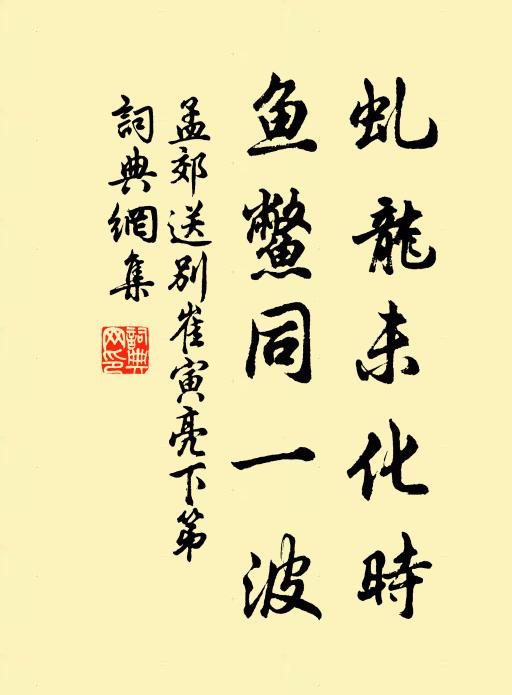 虬龍未化時
鱼鱉同一波
孟郊送别崔寅亮下第
詞典網集
詞典网印